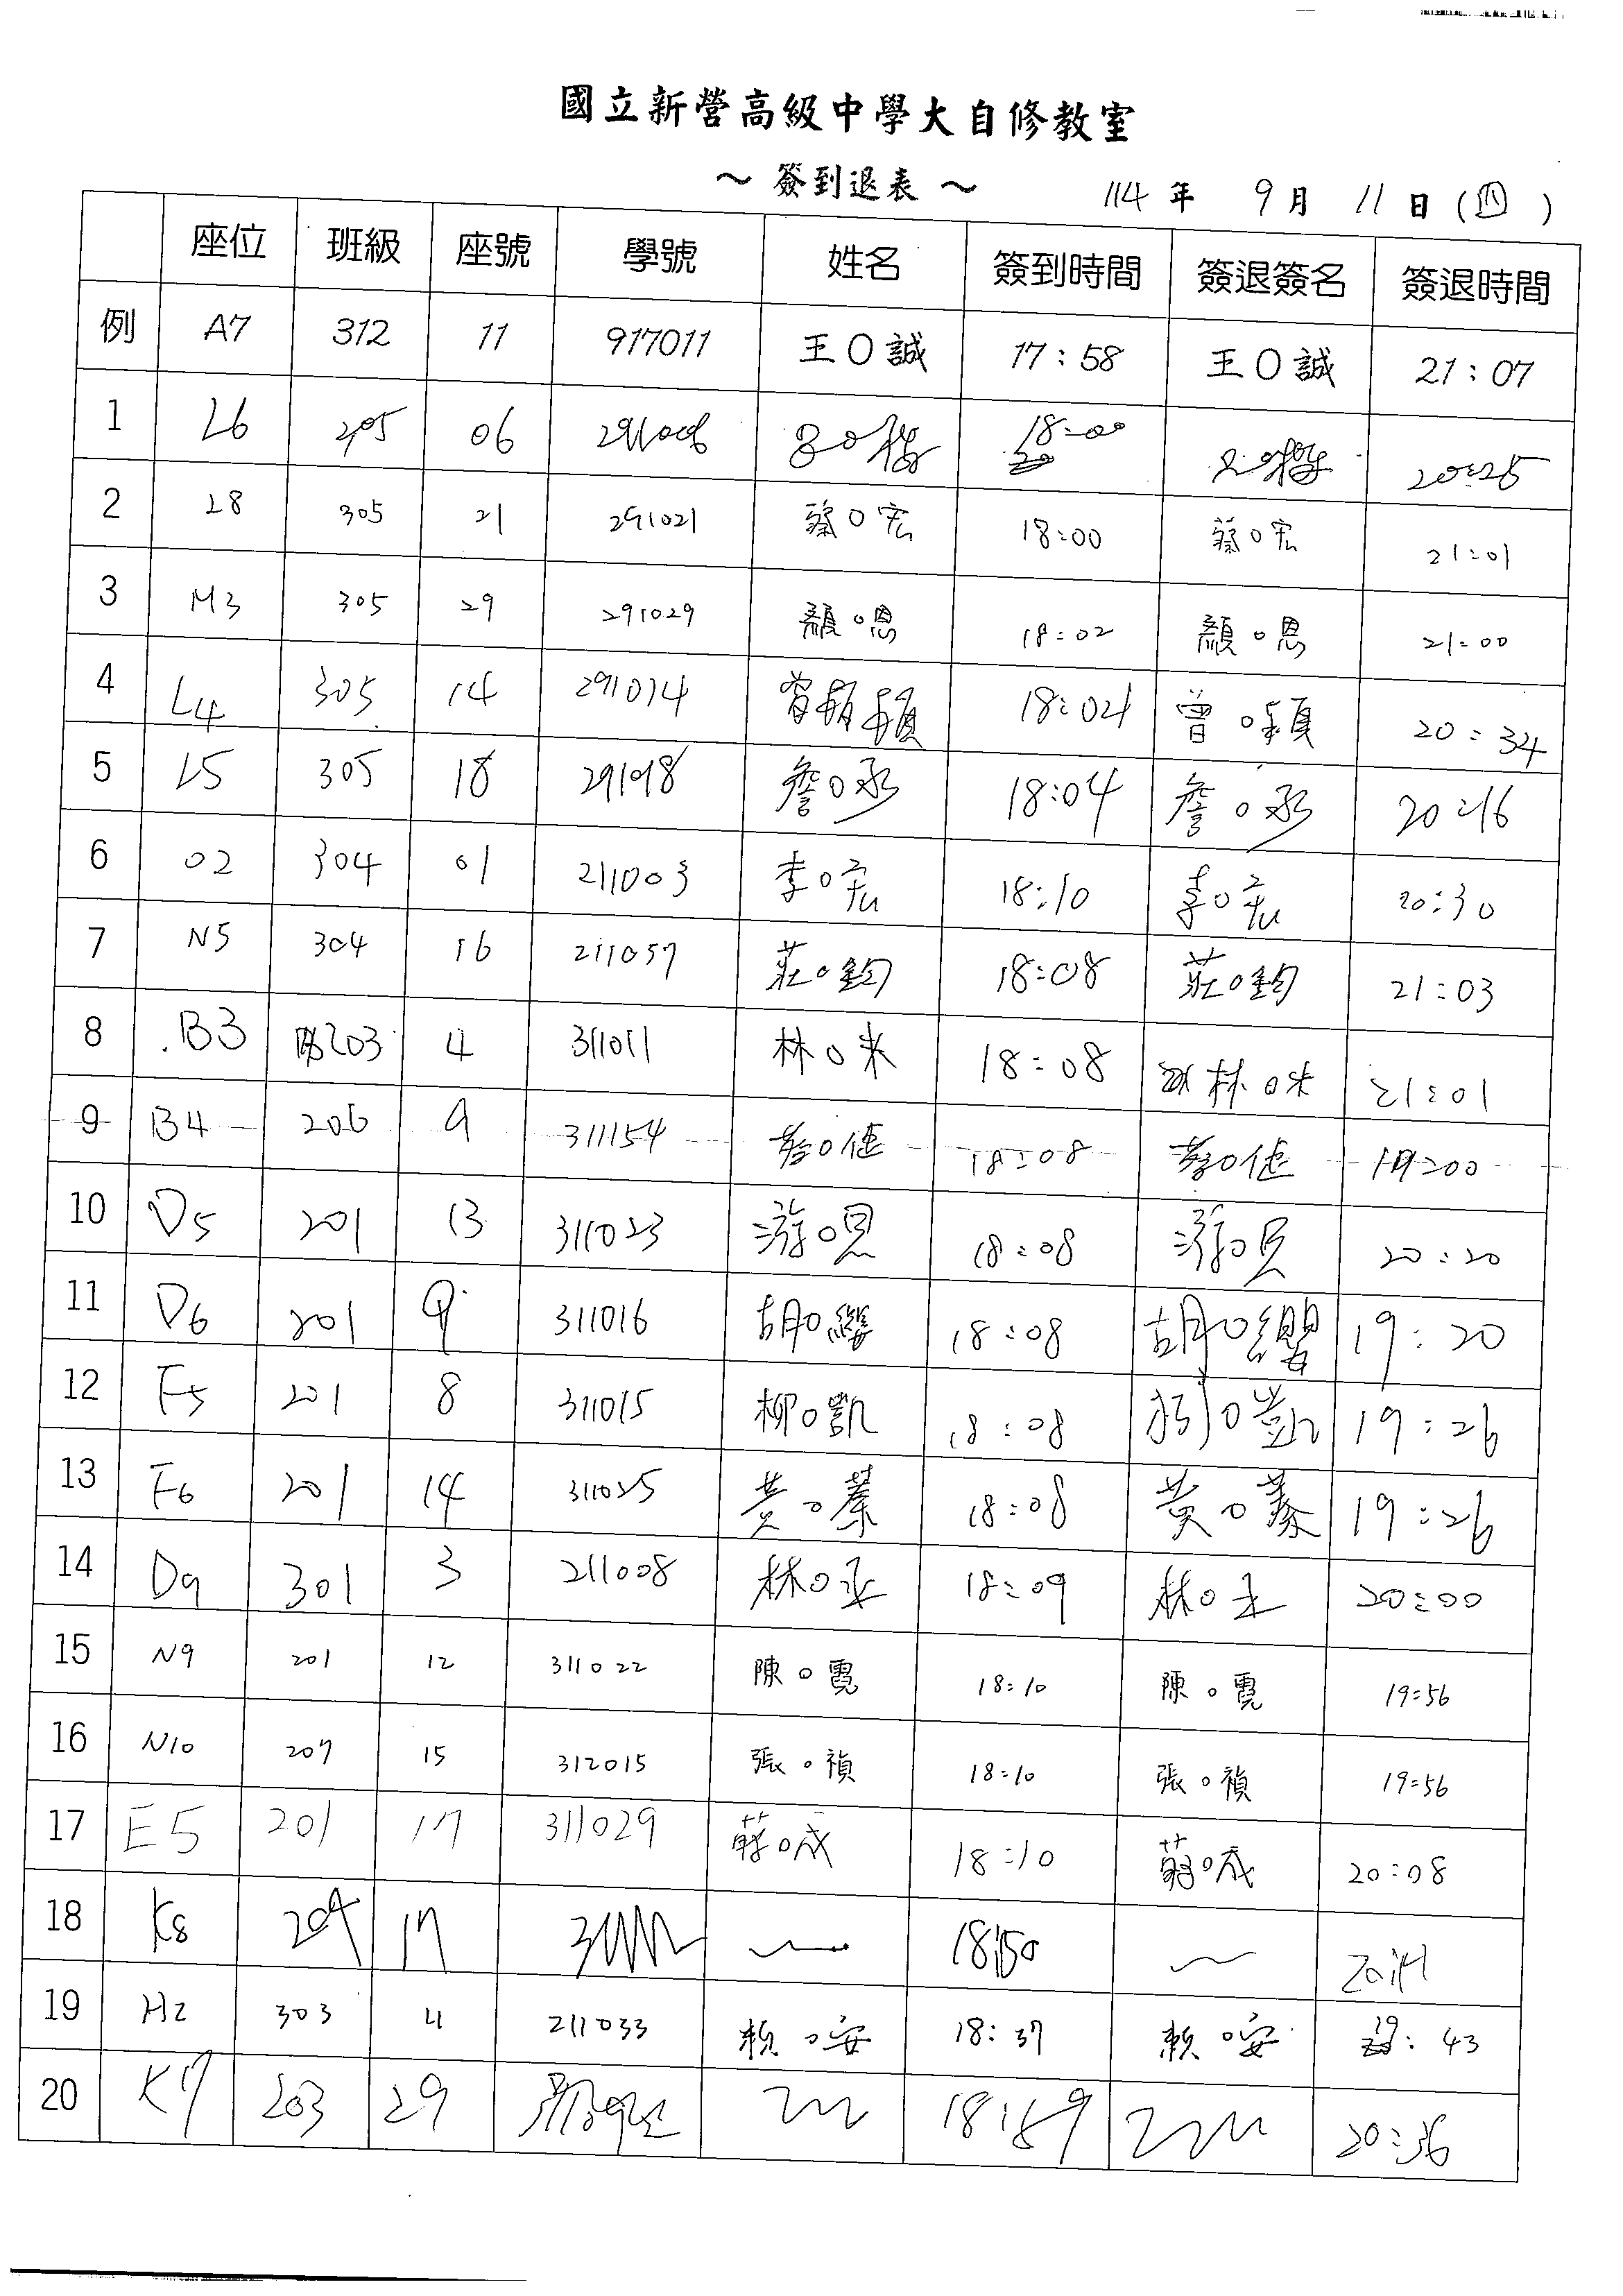 國立新營高級中學大自修教室
～ 簽到退表 ～ 114 年 9 月 11 日 (四)
座位 班級 座號 學號 姓名 簽到時間 簽退簽名 簽退時間
例 A7 312 11 917011 王O誠 17:58 王O誠 21:07
1 L6 06 18:00 20:25
2 L8 305 21 291021 蔡O宏 18:00 蔡O宏 21:01
3 M3 305 29 291029 顏O恩 18:02 顏O恩 21:00
4 L4 305 14 291014 18:04 曾O穎 20:34
5 L5 305 18 詹O丞 18:04 詹O丞 20:16
6 O2 304 01 211003 李O宏 18:10 李O宏 20:30
7 N5 304 16 211057 莊O鈞 18:08 莊O鈞 21:03
8 B3 203 4 311011 林O米 18:08 林O米 21:01
9 B4 206 9 311154 18:08
10 D5 201 13 311023 游O恩 18:08 20:20
11 D6 201 9 311016 胡O纓 18:08 胡O纓 19:20
12 F5 201 8 311015 柳O凱 18:08 柳O凱 19:26
13 F6 201 14 311025 黃O蓁 18:08 黃O蓁 19:26
14 D9 301 3 211008 林O丞 18:09 林O丞 20:00
15 N9 201 12 311022 陳O霓 18:10 陳O霓 19:56
16 N10 207 15 312015 張O禎 18:10 張O禎 19:56
17 E5 201 17 311029 18:10 20:08
18 K8 204 17 18:50
19 H2 303 4 211033 賴O安 18:37 賴O安 19:43
20 K7 203 29 20:36